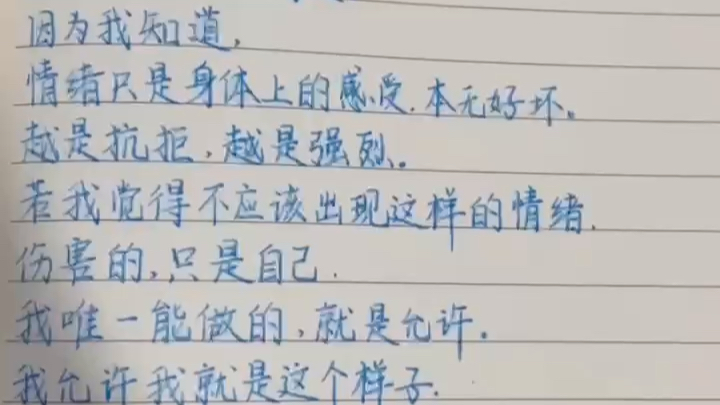 因为我知道,
情绪只是身体上的感受.本无好坏。
越是抗拒,越是强烈。
若我觉得不应该出现这样的情绪.
伤害的,只是自己.
我唯一能做的,就是允许.
我允许我就是这个样子.